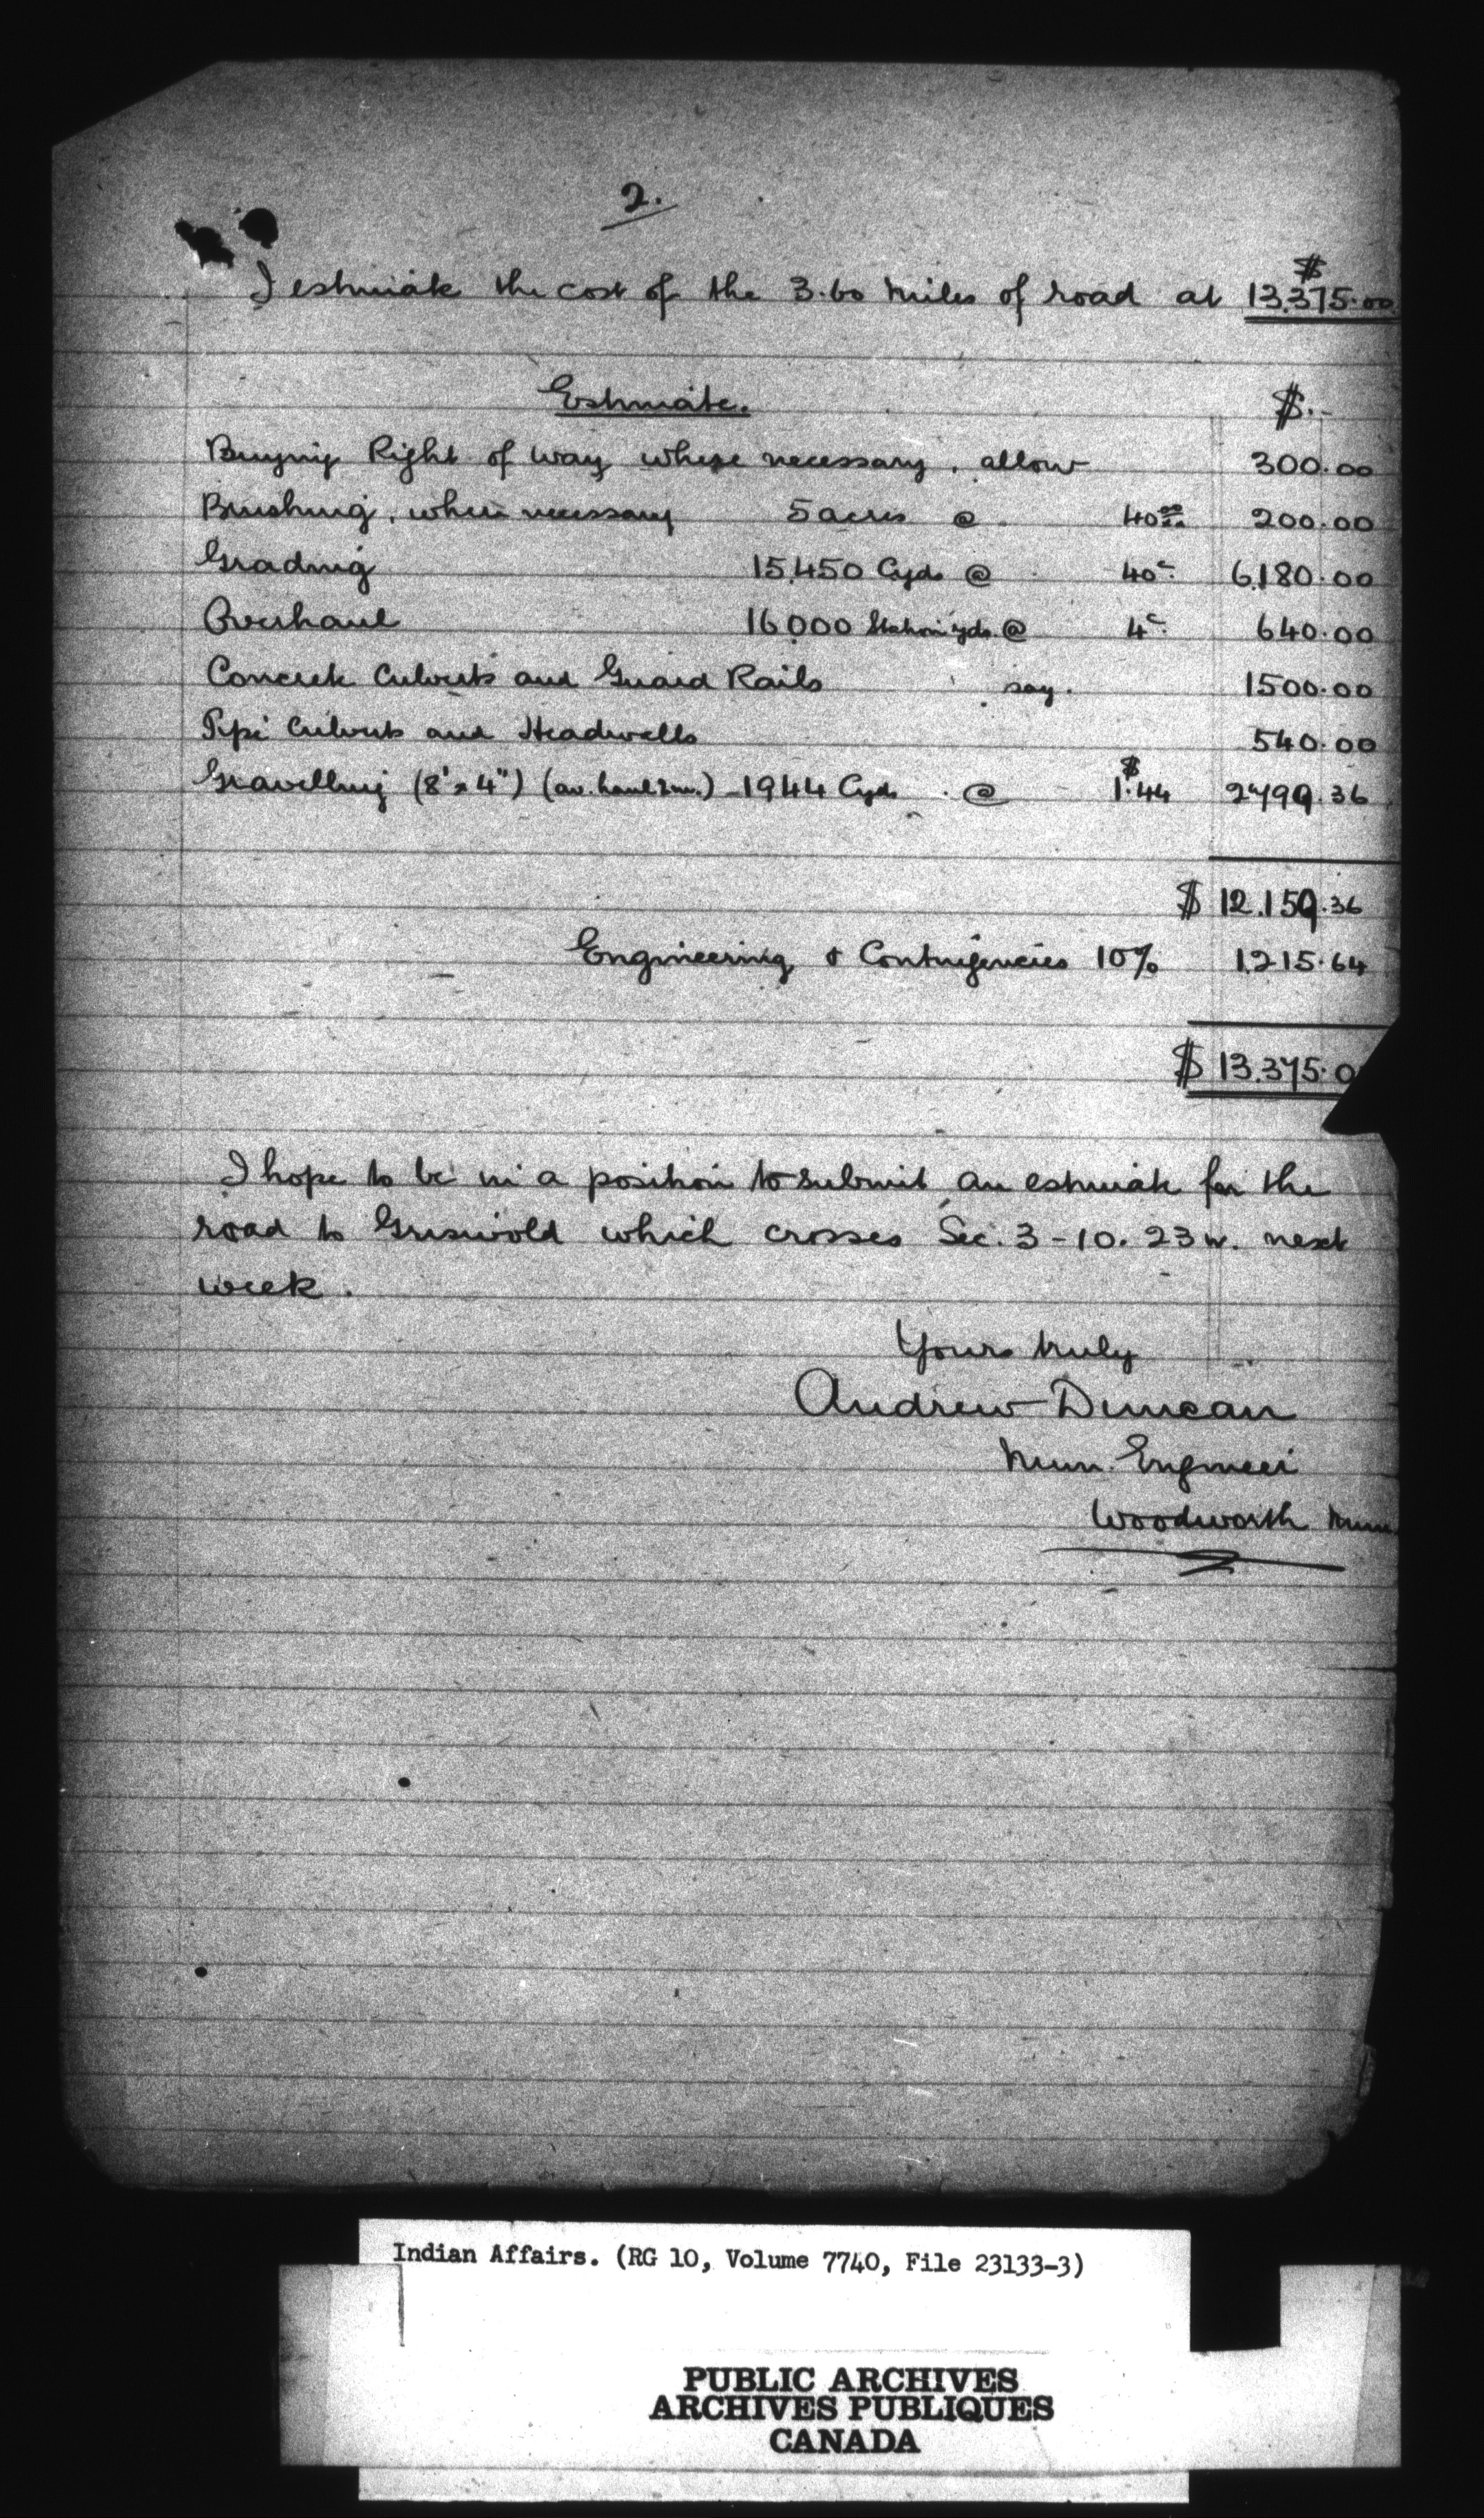 2.
I estimate the cost of the 3.60 miles of road at $13,375.00
Estimate. $.-
Buying Right of Way where necessary, allow 300.00
Brushing, where necessary 5 acres @ 40.00 200.00
Grading 15,450 Cyds @ 40c. 6,180.00
Overhaul 16000 Station yds. @ 4c. 640.00
Concrete Culverts and Guard Rails say. 1500.00
Pipe Culverts and Headwalls 540.00
Gravelling (8'x4") (av. haul 2m.) 1944 Cyds. @ $1.44 2799.36
$ 12.159.36
Engineering & Contingencies 10% 1,215.64
$ 13.375.0
I hope to be in a position to submit an estimate for the
road to Griswold which crosses Sec. 3-10. 23 w. next
week.
Yours truly
Andrew Duncan
Mun. Engineer
Woodworth Mun.
Indian Affairs. (RG 10, Volume 7740, File 23133-3)
PUBLIC ARCHIVES
ARCHIVES PUBLIQUES
CANADA